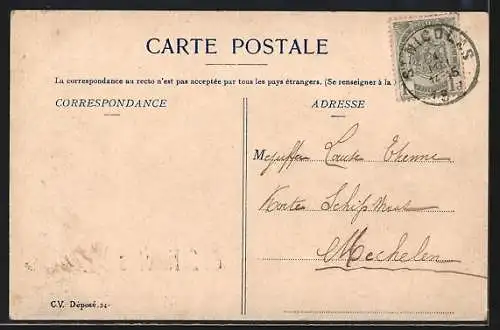 CARTE POSTALE
La correspondance au recto n'est pas acceptée par tous les pays étrangers. (Se renseigner à la
CORRESPONDANCE
ADRESSE
ST NICOLAS
Mejuffer Louise Etienne
Korte Schipstraat
Mechelen
C.V. Déposé. 24